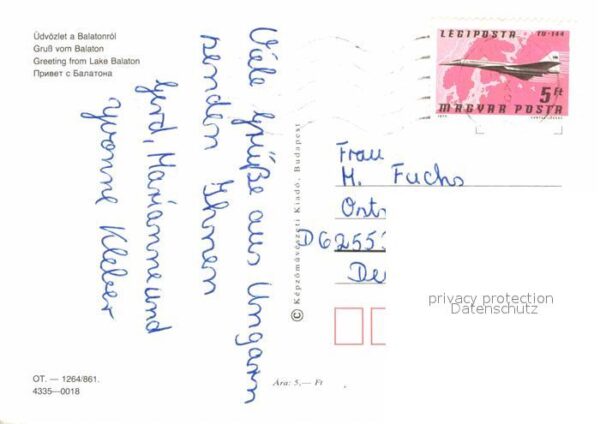 Üdvözlet a Balatonról
Gruß vom Balaton
Greeting from Lake Balaton
Привет с Балатона
Viele Grüße aus Ungarn
senden Ihnen
Gerd, Marianne und
Yvonne Kleber
OT. — 1264/861.
4335—0018
© Képzőművészeti Kiadó, Budapest
Ára: 5,— Ft
LÉGIPOSTA TU-144
5 Ft
MAGYAR POSTA
Frau
M. Fuchs
D6255
privacy protection
Datenschutz